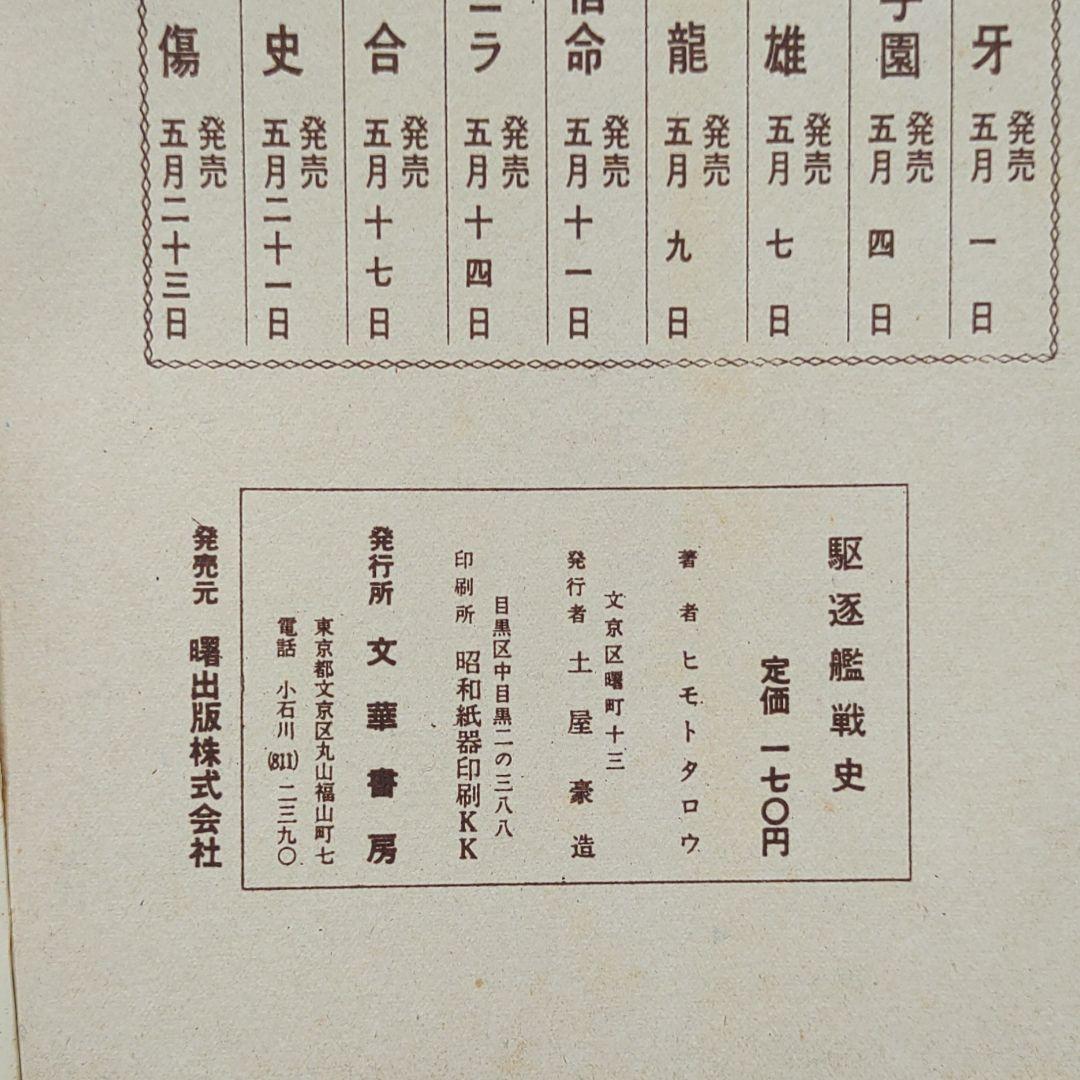 牙 発売 五月 一日
学園 発売 五月 四日
雄 発売 五月 七日
龍 発売 五月 九日
宿命 発売 五月 十一日
ラ 発売 五月 十四日
合 発売 五月 十七日
史 発売 五月二十一日
傷 発売 五月二十三日
駆逐艦戦史
定価 一七〇円
著者 ヒモトタロウ
文京区曙町十三
発行者 土屋豪造
目黒区中目黒二の三八八
印刷所 昭和紙器印刷KK
発行所 文華書房
東京都文京区丸山福山町七
電話 小石川(811)二三九〇
発売元 曙出版株式会社